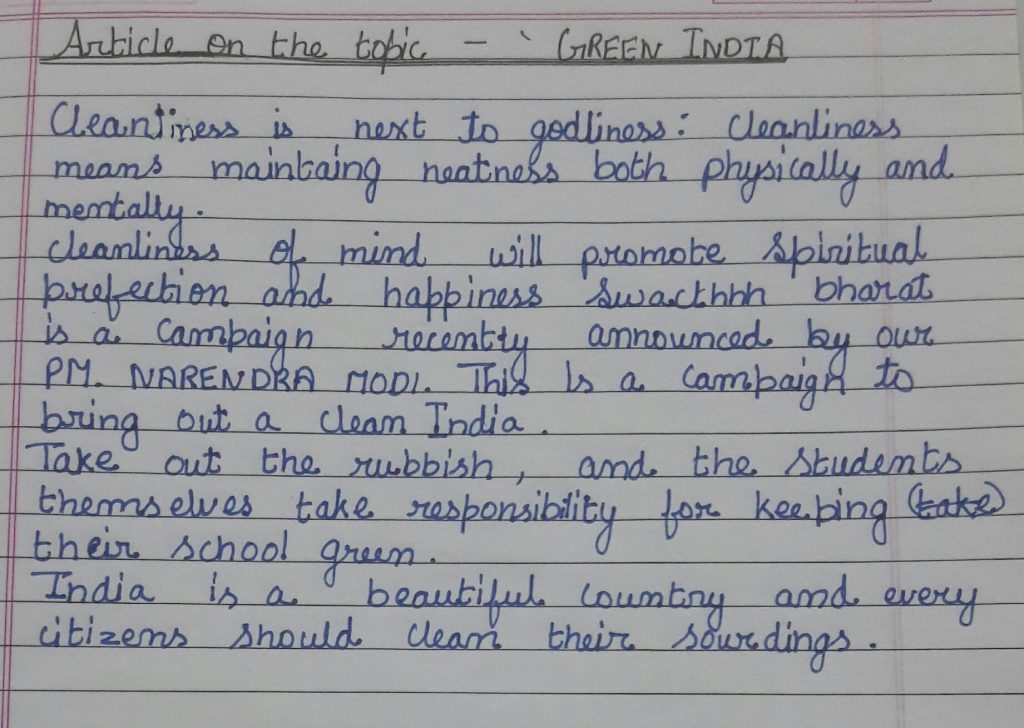 Article on the topic - ` GREEN INDIA
Cleanliness is next to godliness: Cleanliness
means maintaing neatness both physically and
mentally.
Cleanliness of mind will promote spiritual
prefection and happiness swacthhh bharat
is a campaign recently announced by our
PM. NARENDRA MODI. This is a campaign to
bring out a clean India.
Take out the rubbish, and the students
themselves take responsibility for keeping (take)
their school green.
India is a beautiful country and every
citizens should clean their sourdings.